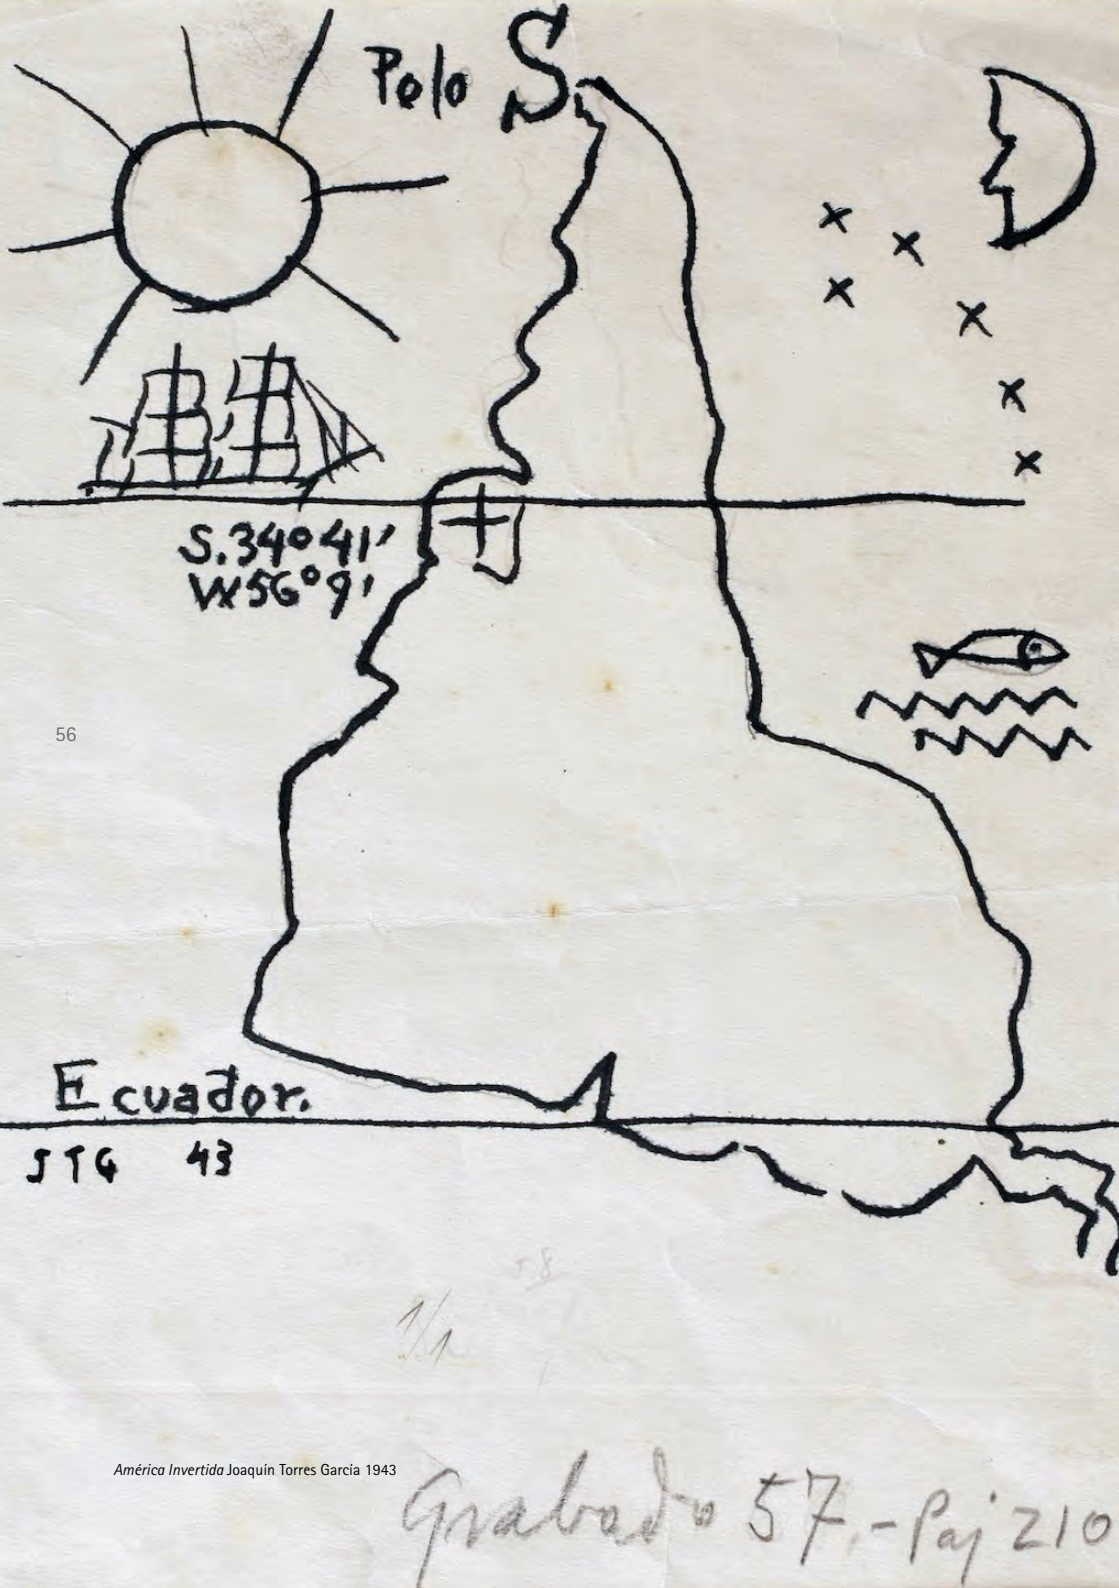 Polo S.
S. 34º 41'
W 56º 9'
56
Ecuador.
JTG 43
1/1
América Invertida Joaquín Torres García 1943
Grabado 57.- Paj 210